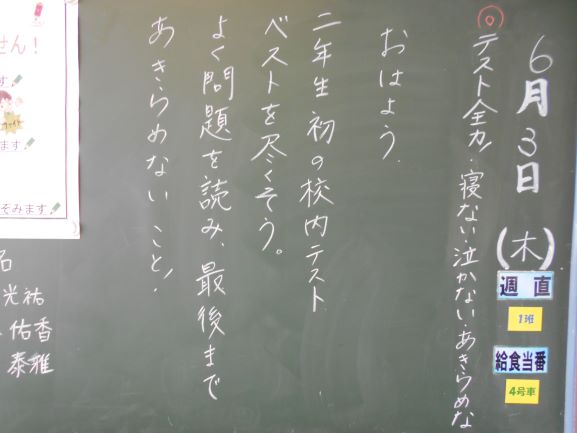 6月3日(木)
週直
1班
給食当番
4号車
◎テスト全力・寝ない・泣かない・あきらめな
おはよう.
二年生初の校内テスト
ベストを尽くそう。
よく問題を読み、最後まで
あきらめないこと!.
せん!
ます
ぞみます
名
光祐
佑香
泰雅